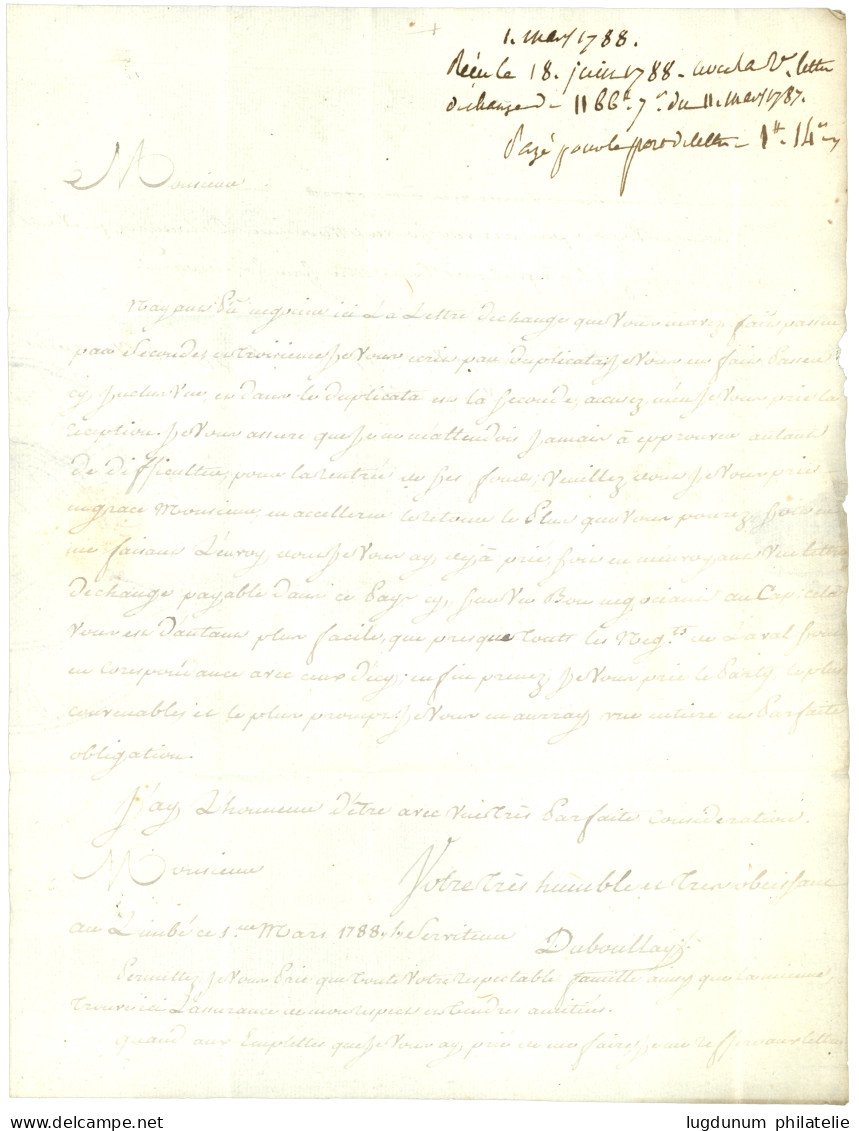 1. mars 1788.
Reçu le 18. juin 1788. avec la lettre
d'echange de 1166# 7s du 11. mars 1787.
Payé pour le port de lettre 1# 14s
Monsieur
N'ayant pû negocier ici La Lettre dechange que Vous m'avez fait passer
par Seconde, et troisieme, Je Vous écris par Duplicata; Je Vous en fais Passer
cy Jnclus Une, et dans le duplicata est la Seconde, accusez m'en Je Vous prie la
réception. Je Vous assure que Je ne m'attendois Jamais à epprouver autant
de difficultées pour la rentrée de ses fonds; Veuillez donc Je Vous prie
en grace Monsieur, en accellerer le retour le Plus que Vous pourez, soit en
me faisant L'envoy, dont Je Vous ay déjà prié, soit en m'envoyant Une lettre
dechange payable dans ce Pays cy, sur Un Bon negociant au Cap; cela
Vous est d'autant plus facile, que presque touts les Neg.ts de Laval sont
en corespondance avec ceux d'icy; enfin prenez, Je Vous prie le Party le plus
convenables et le plus prompt, Je Vous en aurray une entiere et Parfaite
obligation.
J'ay L'honneur d'être avec Une très Parfaite Considération.
Monsieur
Votre très humble et tres obeissant
au Limbé ce 1.er Mars 1788. Serviteur
Duboullay
Permettez Je Vous Prie que toute Votre respectable famille ainsy que la mienne,
trouve ici L'assurance de mon respect et tendres amitiés.
quand aux Emplettes que Je Vous ay prié de me faire, Je me reffere aux lettres
lugdunum philatelie